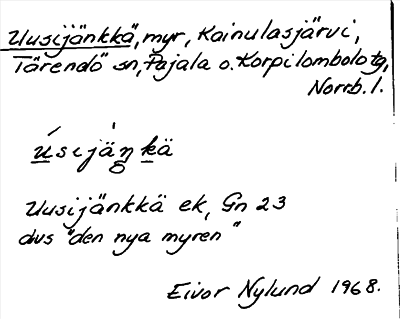 Uusijänkkä, myr, Kainulasjärvi,
Tärendö sn, Pajala o. Korpilombolo tg,
Norrb. l.
úsijàŋkä
Uusijänkkä ek, Gn 23
dvs "den nya myren"
Eivor Nylund 1968.